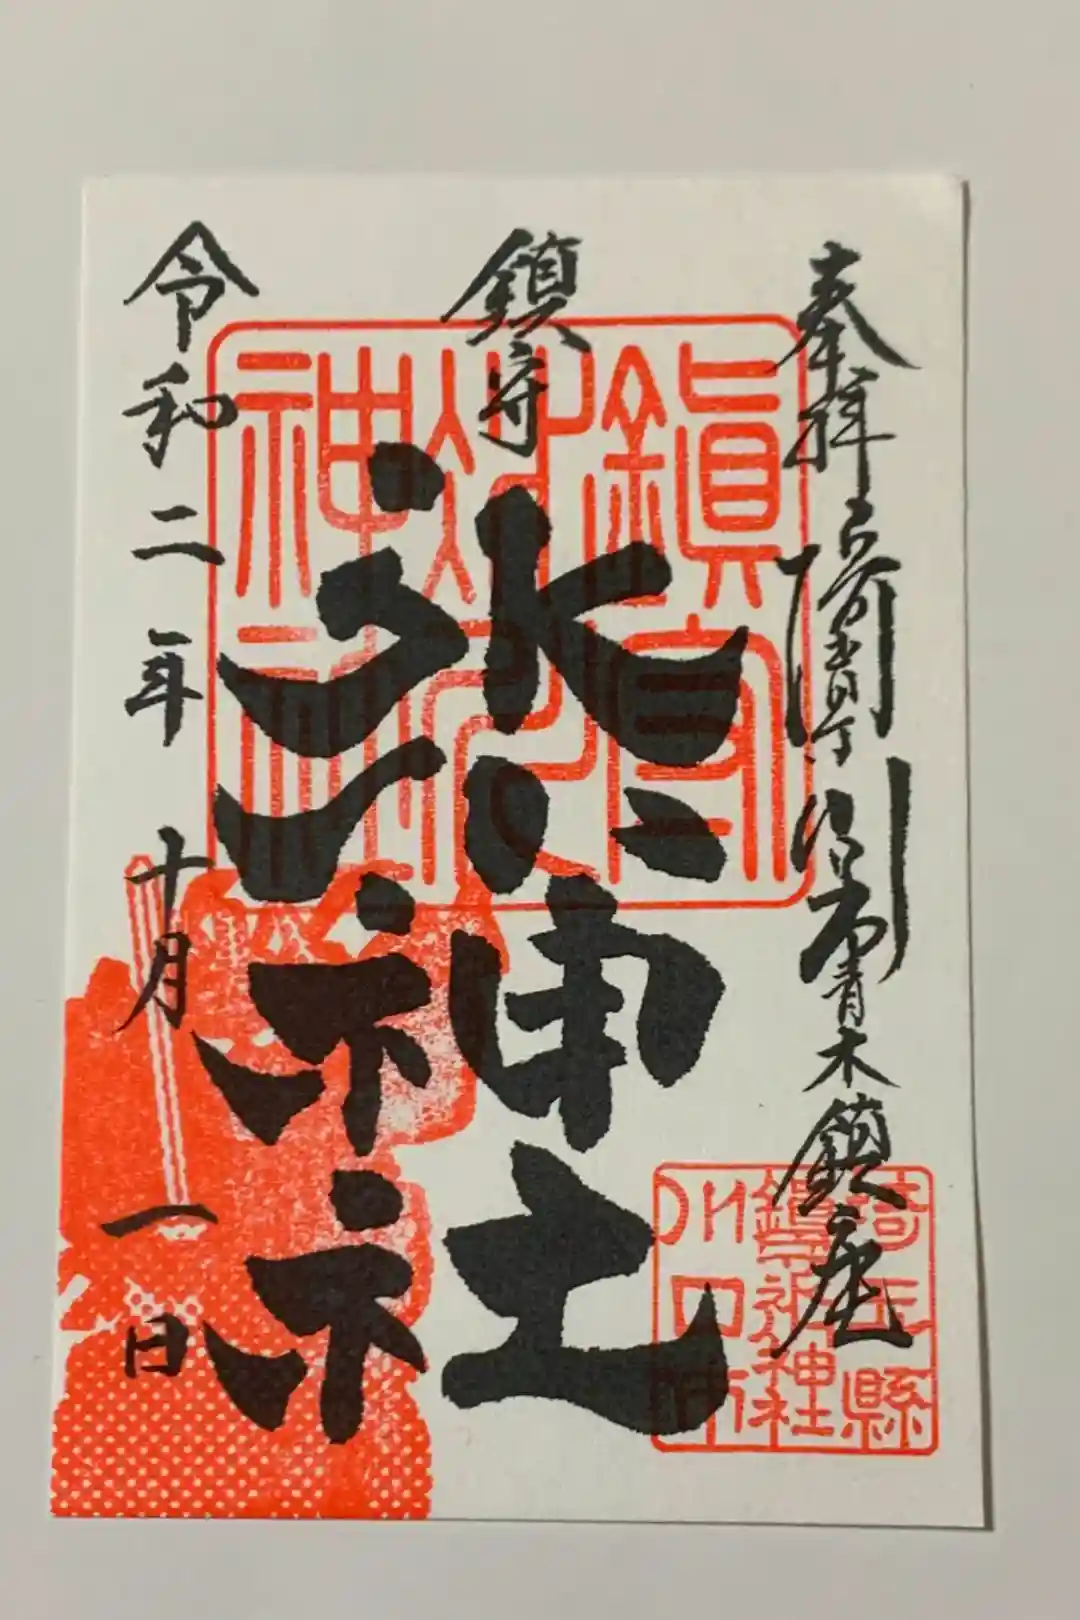 奉拝
青木鎮座
鎮守
氷川神社
令和二年十月一日
鎮守
氷川
神社
埼玉縣
鎮守氷川神社
川口市